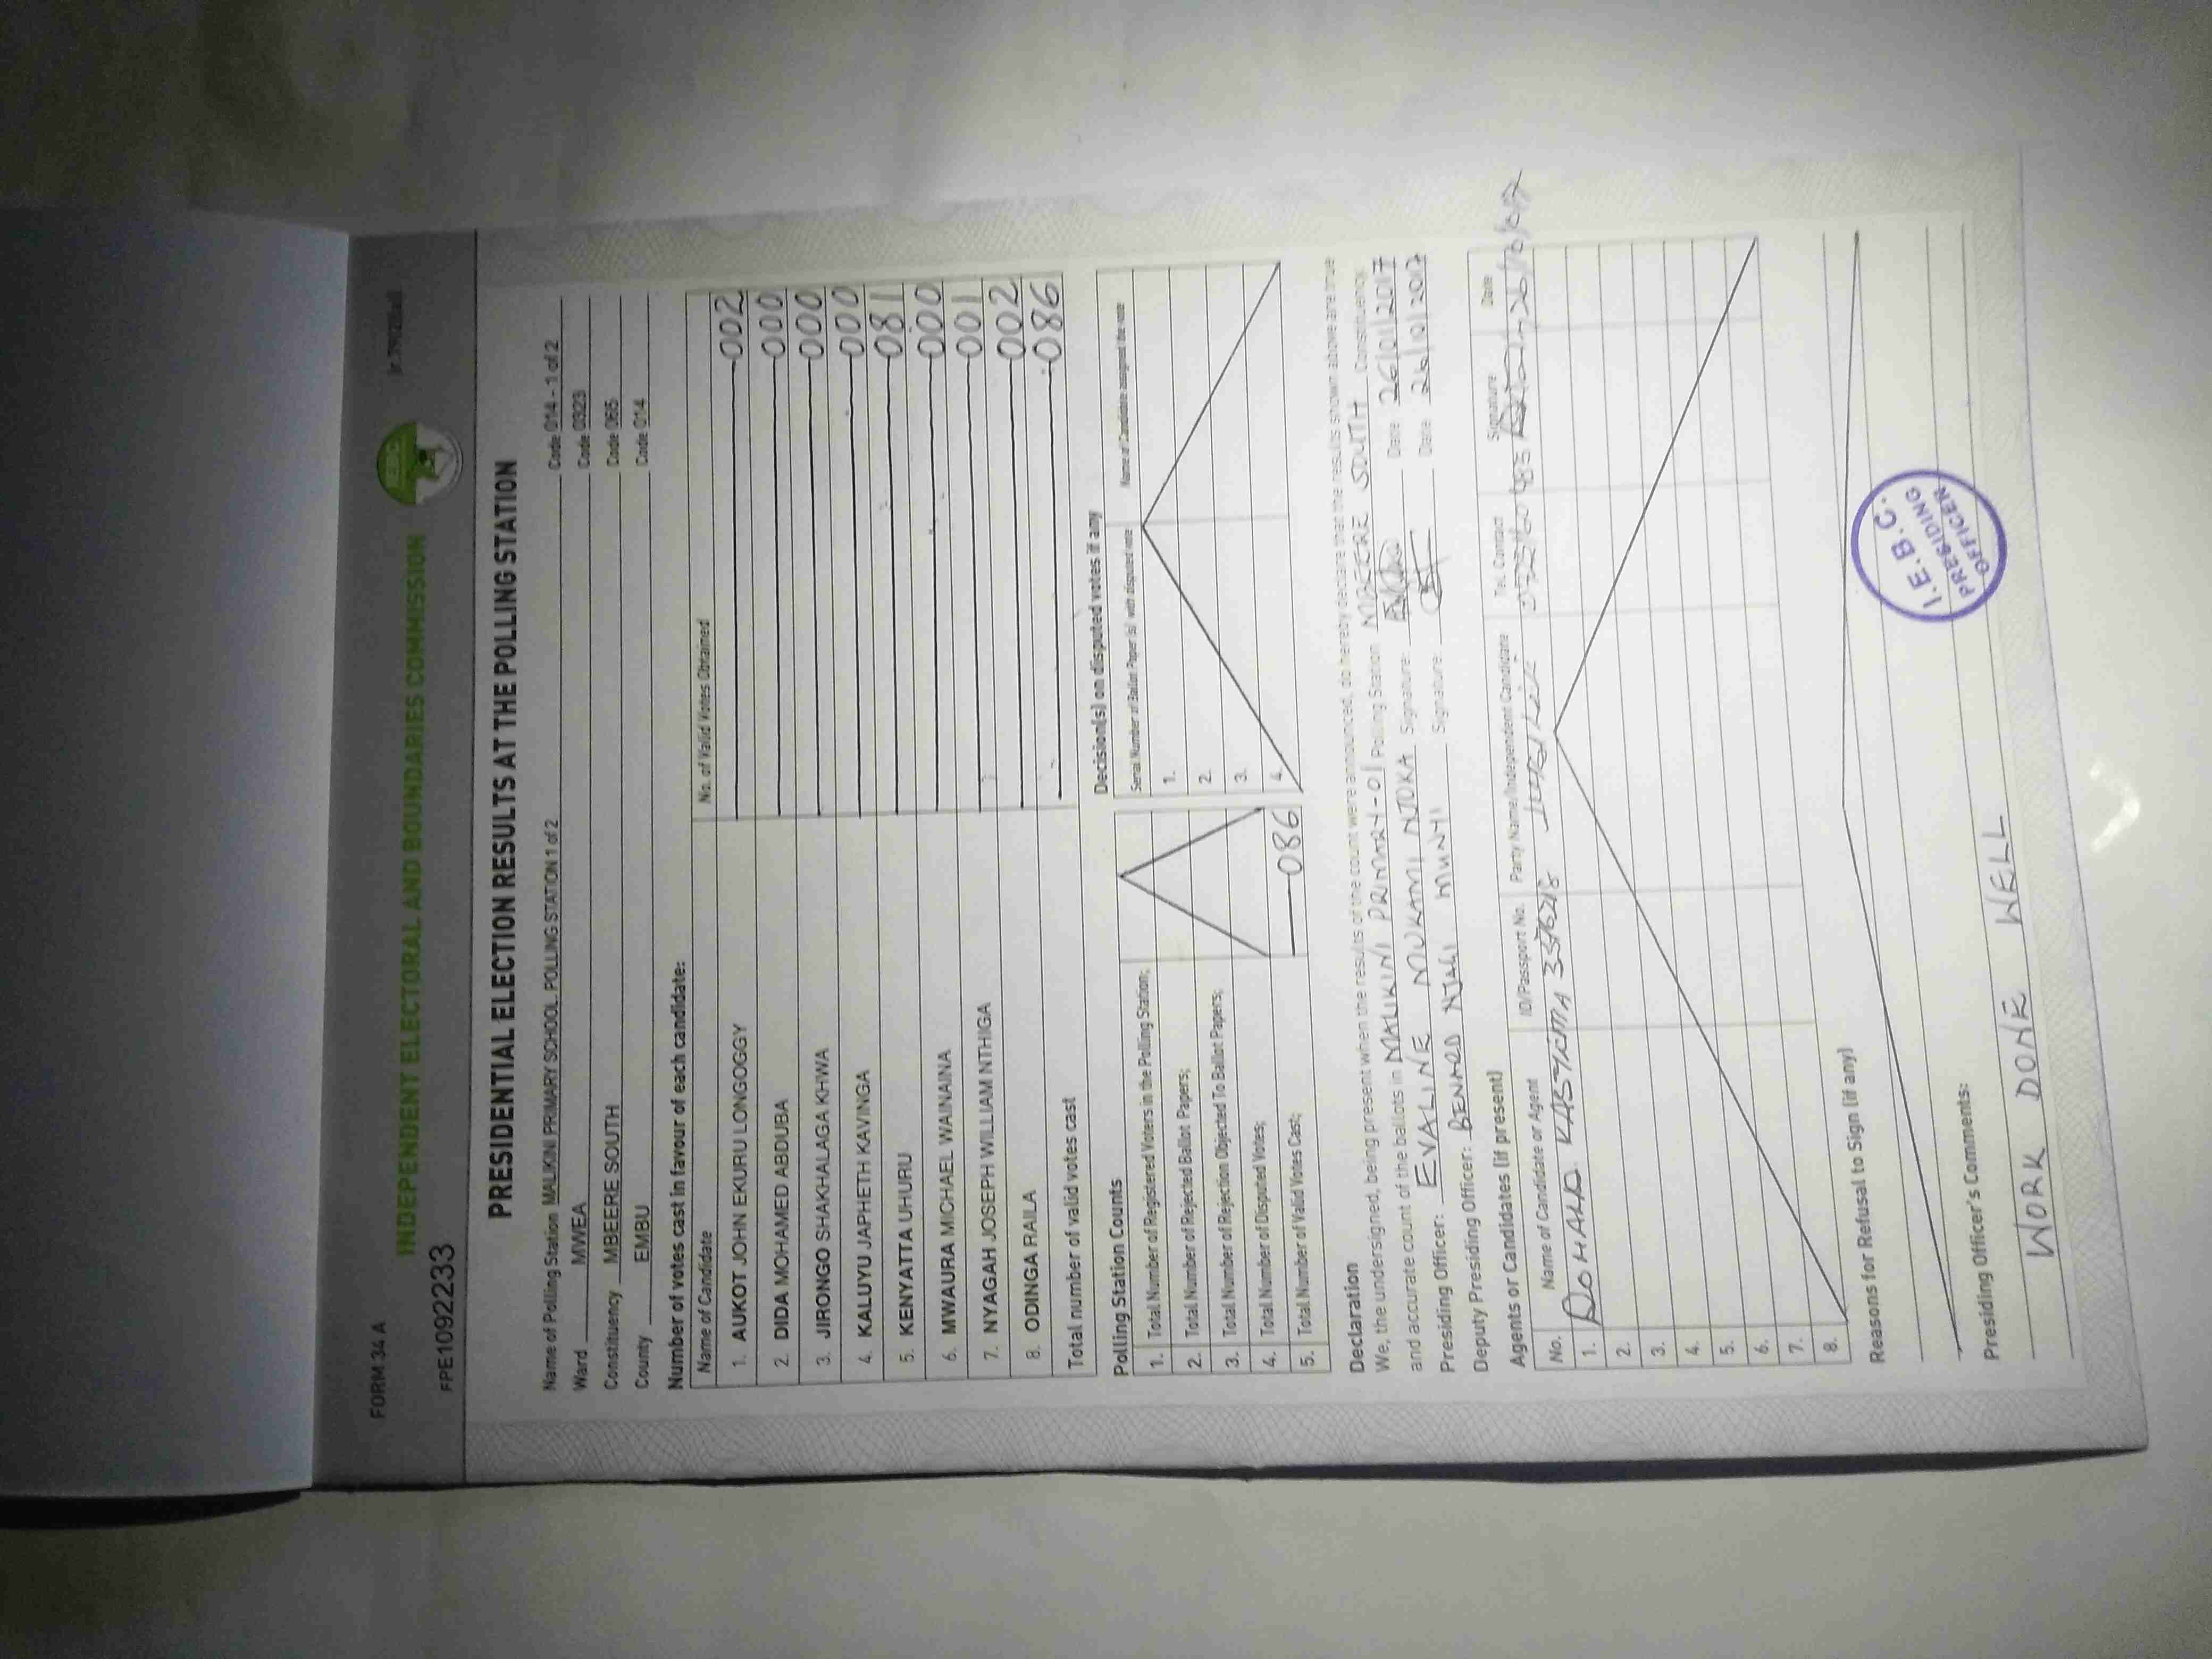 FORM 34 A
INDEPENDENT ELECTORAL AND BOUNDARIES COMMISSION
FPE1092233
PRESIDENTIAL ELECTION RESULTS AT THE POLLING STATION
Name of Polling Station MALIKINI PRIMARY SCHOOL, POLLING STATION 1 of 2 Code 014 - 1 of 2
Ward MWEA Code 0323
Constituency MBEERE SOUTH Code 065
County EMBU Code 014
Number of votes cast in favour of each candidate:
Name of Candidate No. of Valid Votes Obtained
1. AUKOT JOHN EKURU LONGOGGY 002
2. DIDA MOHAMED ABDUBA 000
3. JIRONGO SHAKHALAGA KHWA 000
4. KALUYU JAPHETH KAVINGA 000
5. KENYATTA UHURU 081
6. MWAURA MICHAEL WAINAINA 000
7. NYAGAH JOSEPH WILLIAM NTHIGA 001
8. ODINGA RAILA 002
Total number of valid votes cast 086
Polling Station Counts
1. Total Number of Registered Voters in the Polling Station;
2. Total Number of Rejected Ballot Papers;
3. Total Number of Rejection Objected To Ballot Papers;
4. Total Number of Disputed Votes;
5. Total Number of Valid Votes Cast; 086
Decision(s) on disputed votes if any
Serial Number of Ballot Paper(s) with disputed vote Name of Candidate assigned the vote
1.
2.
3.
4.
Declaration
We, the undersigned, being present when the results of the count were announced, do hereby declare that the results shown above are true
and accurate count of the ballots in MALIKINI PRIMARY-01 Polling Station MBEERE SOUTH Constituency
Presiding Officer: EVALINE MUKAMI NJOKA Signature: Date 26/01/2017
Deputy Presiding Officer: BENARD NJAGI MUNYI Signature: Date 26/10/2017
Agents or Candidates (if present)
No. Name of Candidate or Agent ID/Passport No. Party Name/Independent Candidate Tel. Contact Signature Date
1. DONALD
2.
3.
4.
5.
6.
7.
8.
Reasons for Refusal to Sign (if any)
I.E.B.C.
PRESIDING
OFFICER
Presiding Officer's Comments:
WORK DONE WELL